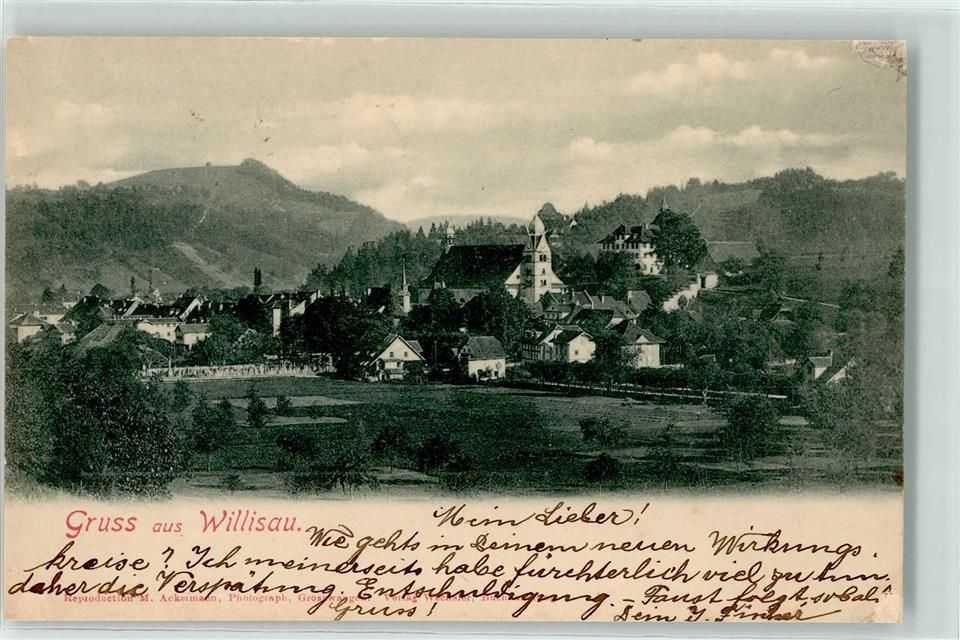 Gruss aus Willisau.
Mein Lieber!
Wie gehts in Deinem neuen Wirkungs-
kreise? Ich meinerseits habe fürchterlich viel zu thun.
daher die Verspätung Entschuldigung. - Faust folgt sobald
Reproduction M. Ackermann, Photograph, Verlag
Gruss! Dein J.